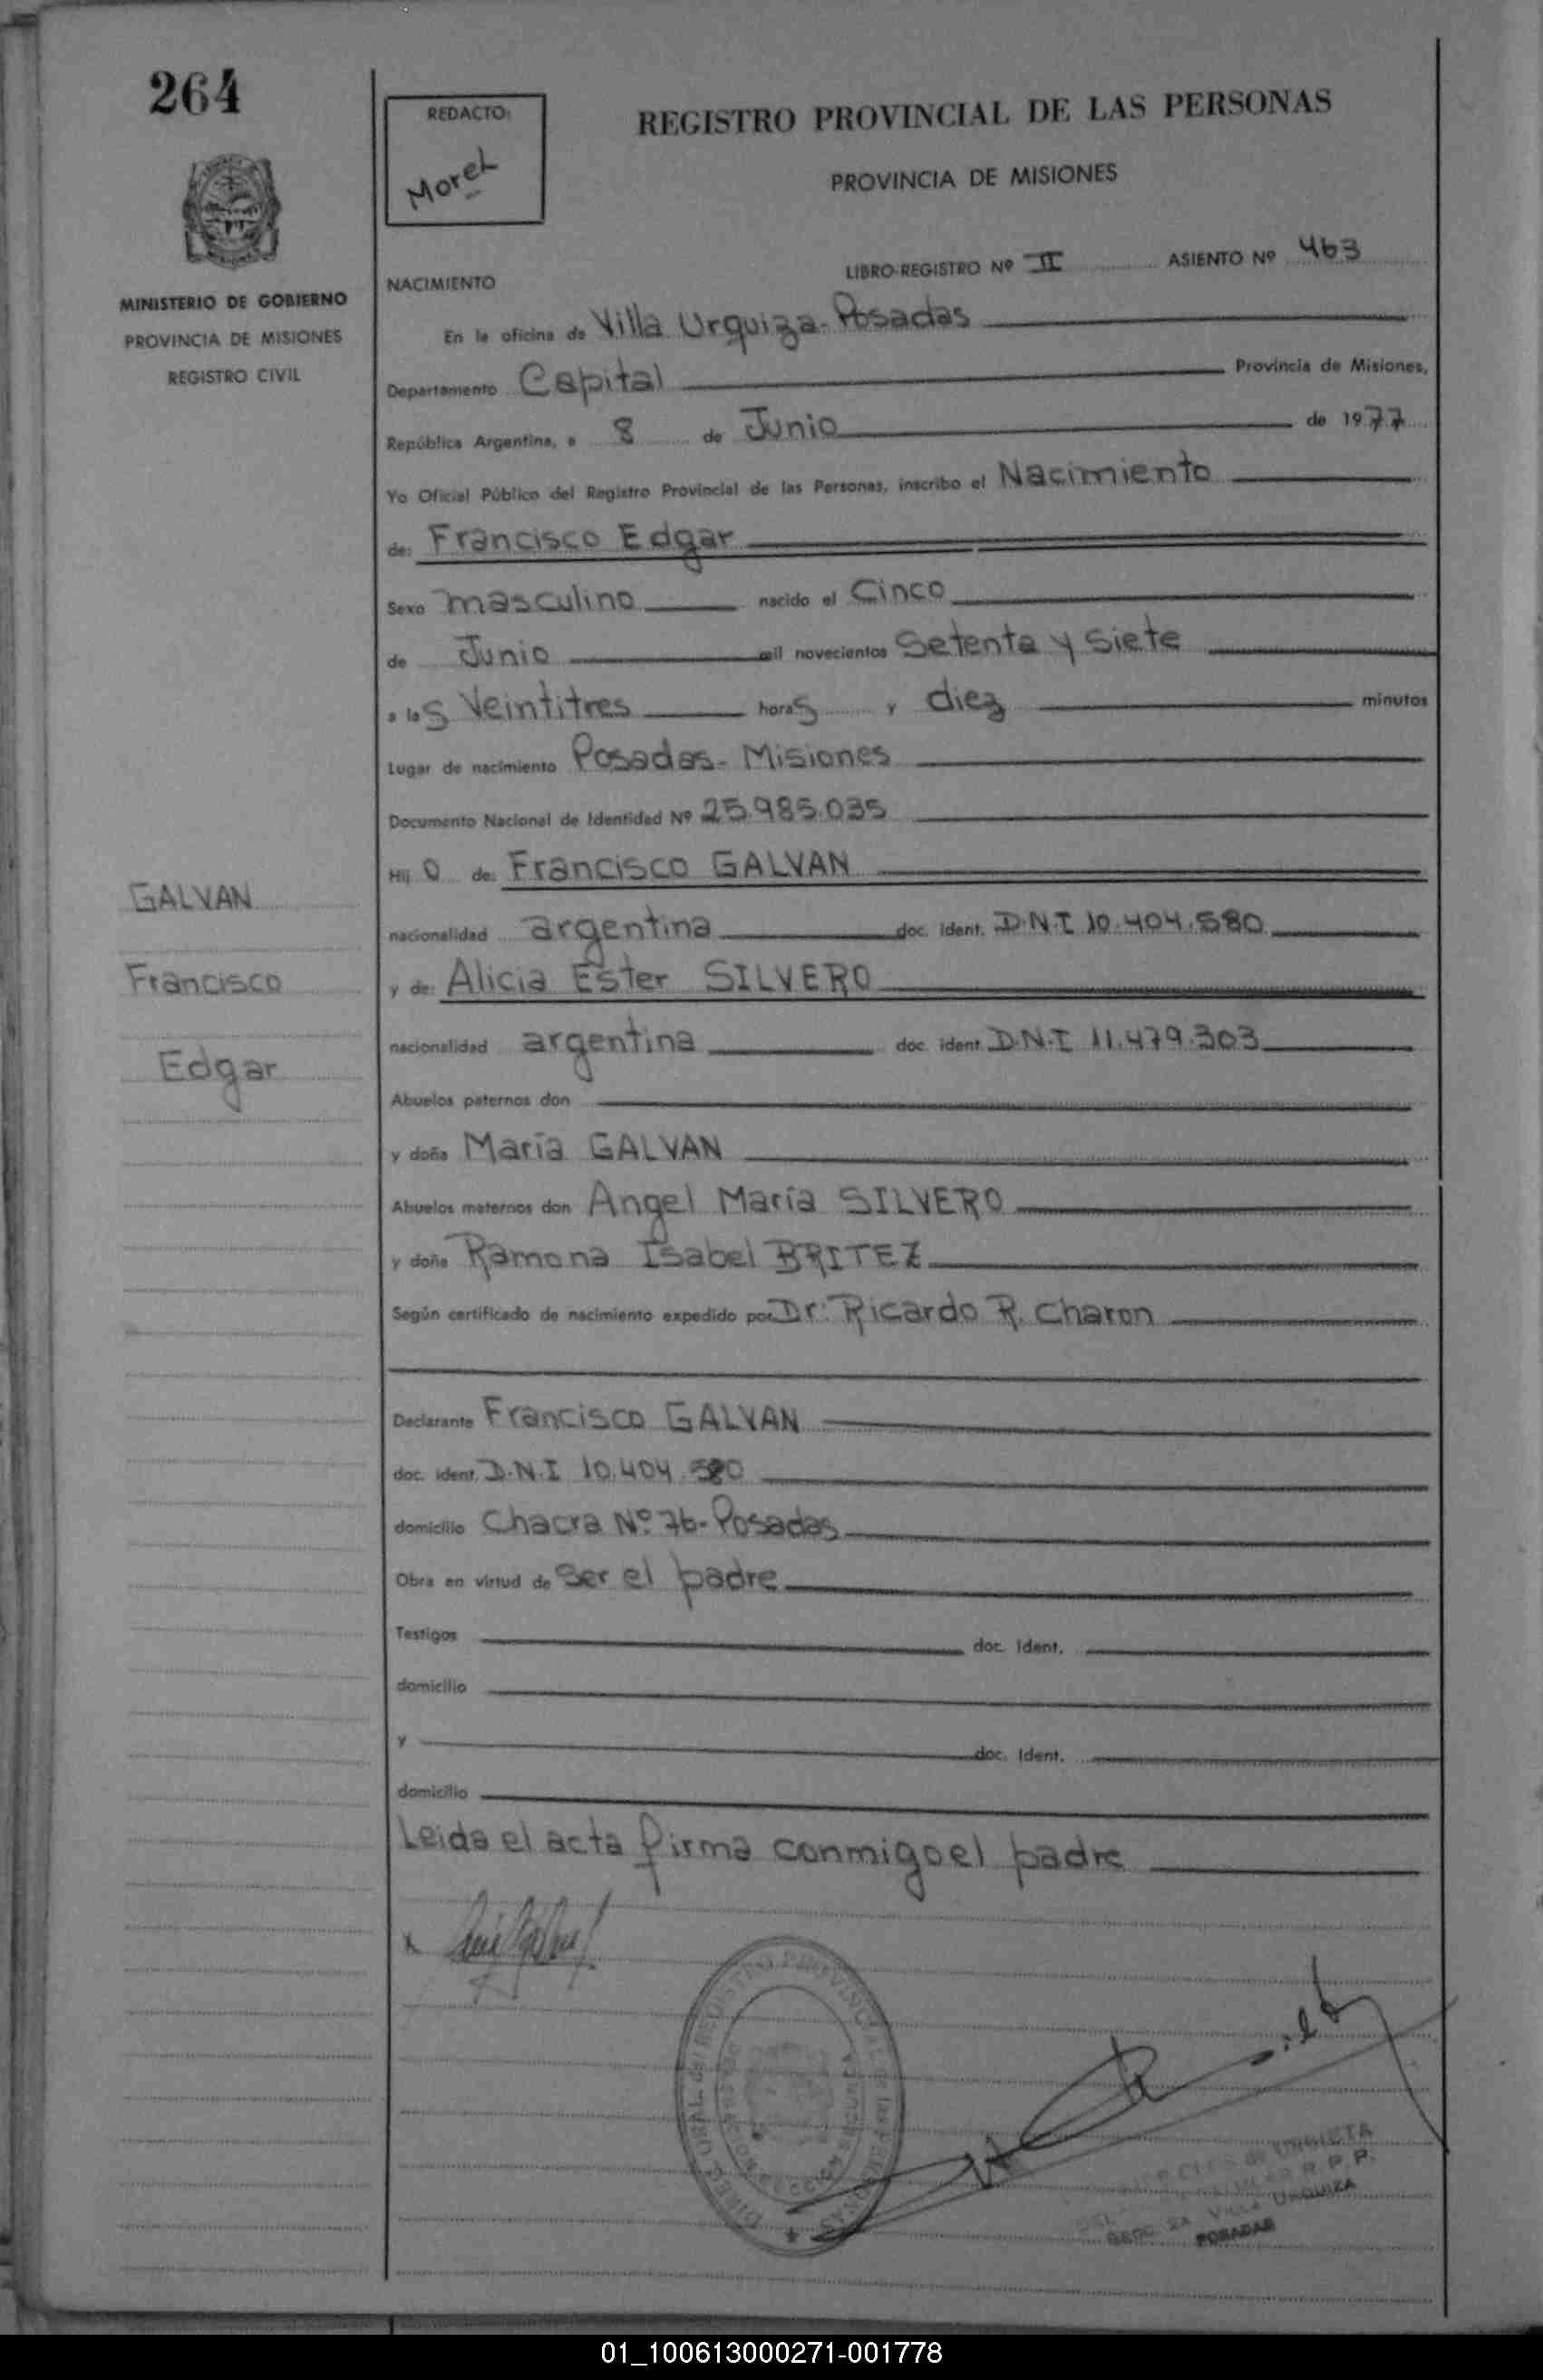 264
REDACTO:
Morel
REGISTRO PROVINCIAL DE LAS PERSONAS
PROVINCIA DE MISIONES
MINISTERIO DE GOBIERNO
PROVINCIA DE MISIONES
REGISTRO CIVIL
NACIMIENTO
LIBRO-REGISTRO Nº II ASIENTO Nº 463
En la oficina de Villa Urquiza-Posadas
Departamento Capital Provincia de Misiones,
República Argentina, a 8 de Junio de 1977
Yo Oficial Público del Registro Provincial de las Personas, inscribo el Nacimiento
de: Francisco Edgar
Sexo masculino nacido el Cinco
de Junio mil novecientos Setenta y Siete
a las Veintitres horas y diez minutos
Lugar de nacimiento Posadas-Misiones
Documento Nacional de Identidad Nº 25.985.035
Hijo de: Francisco GALVAN
nacionalidad argentina doc. ident. D.N.I 10.404.580
y de: Alicia Ester SILVERO
nacionalidad argentina doc. ident. D.N.I 11.479.303
Abuelos paternos don
y doña María GALVAN
Abuelos maternos don Angel María SILVERO
y doña Ramona Isabel BRITEZ
Según certificado de nacimiento expedido por Dr: Ricardo R. Charon
Declarante Francisco GALVAN
doc. ident. D.N.I 10.404.580
domicilio Chacra Nº 76-Posadas
Obra en virtud de Ser el padre
Testigos doc. Ident.
domicilio
y doc. Ident.
domicilio
Leida el acta firma conmigo el padre
GALVAN
Francisco
Edgar
R. P. P.
SECC. 2A VILLA URQUIZA
POSADAS
01_100613000271-001778